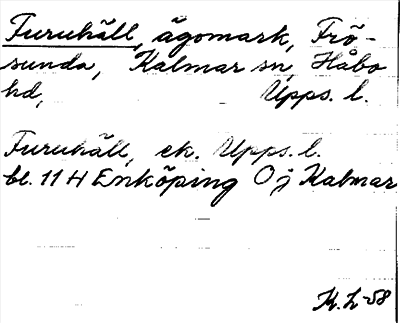 Furuhäll, ägomark, Frö-
sunda, Kalmar sn, Håbo
hd, Upps. l.
Furuhäll, ek. Upps. l.
bl. 11 H Enköping O j Kalmar
K. L-58